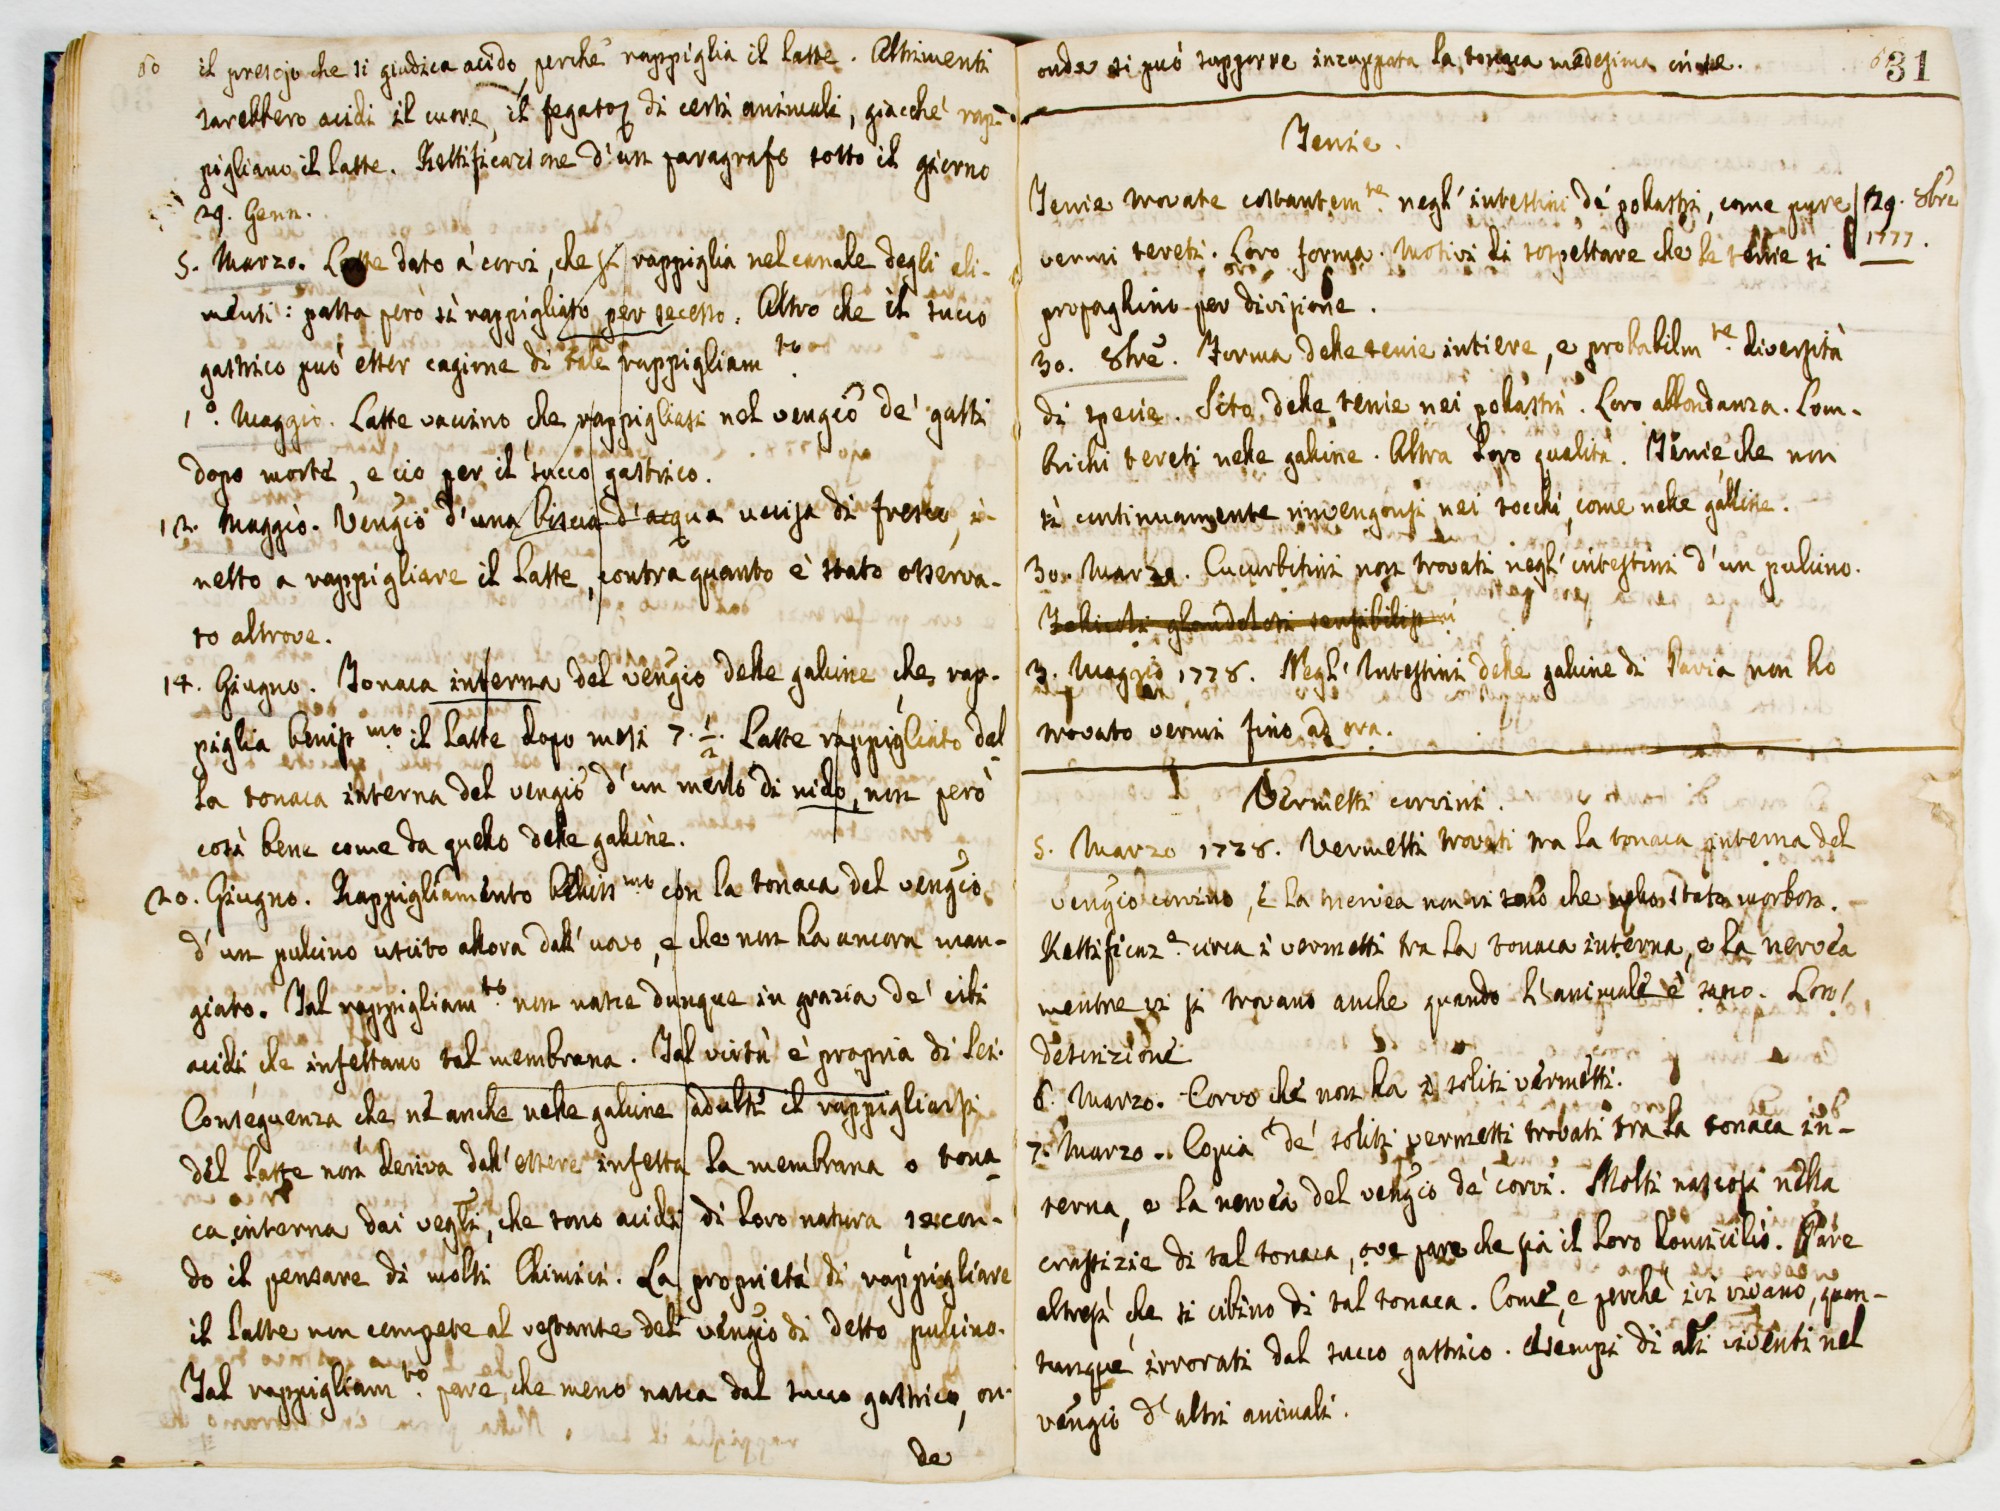 60
il presojo che si giudica acido, perchè rappiglia il latte. Altrimenti
sarebbero acidi il cuore, il fegato di certi animali, giacchè rap-
pigliano il latte. Rettificazione d'un paragrafo sotto il giorno
29. Genn.
5. Marzo. Latte dato a' corvi, che si rappiglia nel canale degli ali-
menti: passa però sì rappigliato per secesso. Altro che il succo
gastrico può esser cagione di tale rappigliam.to
1.° Maggio. Latte vaccino che rappigliasi nel vengiò de' gatti
dopo morte, e ciò per il succo gastrico.
12. Maggio. Vengiò d'una biscia d'acqua uccisa di fresco, i-
netto a rappigliare il latte, contra quanto è stato osserva-
to altrove.
14. Giugno. Tonaca interna del vengiò delle galline che rap-
piglia beniss.mo il latte dopo mesi 7. 1/2. Latte rappigliato dal-
la tonaca interna del vengiò d'un merlo di nido, non però
così bene come da quello delle galline.
20. Giugno. Rappigliamento belliss.mo con la tonaca del vengiò
d'un pulcino uscito allora dall'uovo, e che non ha ancora man-
giato. Tal rappigliam.to non nasce dunque in grazia de' cibi
acidi che infettano tal membrana. Tal virtù è propria di lei.
Conseguenza che nè anche nelle galline adulte il rappigliarsi
del latte non deriva dall'essere infetta la membrana o tona-
ca interna dai vegeti, che sono acidi di loro natura secon-
do il pensare di molti Chimici. La proprietà di rappigliare
il latte non compete al restante del vengiò di detto pulcino.
Tal rappigliam.to pare che meno nasca dal succo gastrico, on-
de
onde si può supporre inzuppata la tonaca medesima
31
Tenie.
Tenie trovate costantem.te negl'intestini de' pollastri, come pure
29. 8bre
1777.
vermi tereti. Loro forma. Motivi di sospettare che le tenie si
propaghino per divisione.
30. 8bre. Forma delle tenie intiere, e probabilm.te diversità
di specie. Sito delle tenie nei pollastri. Loro abbondanza. Lom-
brichi tereti nelle galline. Altra loro qualità. Tenie che non
sì continuamente rinvengonsi nei tocchi, come nelle galline.
30. Marzo. Cucurbitini non trovati negl'intestini d'un pulcino.
Folicoli glandolosi sensibilissimi
3. Maggio 1778. Negl'Intestini delle galline di Pavia non ho
trovato vermi fino ad ora.
Vermetti corvini.
5. Marzo 1778. Vermetti trovati tra la tonaca interna del
vengiò corvino, e la nervea non vi sono che nello stato morboso.
Rettificaz.e circa i vermetti tra la tonaca interna, e la nervea
mentre vi si trovano anche quando l'animale è sano. Loro
descrizione.
6. Marzo. Corvo che non ha i soliti vermetti.
7. Marzo. Copia de' soliti vermetti trovati tra la tonaca in-
terna, e la nervea del vengiò de' corvi. Molti nascosi nella
crassizie di tal tonaca, ove pare che sia il loro domicilio. Pare
altresì che si cibino di tal tonaca. Come, e perchè ivi vivano, quan-
tunque irrorati dal succo gastrico. Esempi di altri viventi nel
vengiò d'altri animali.